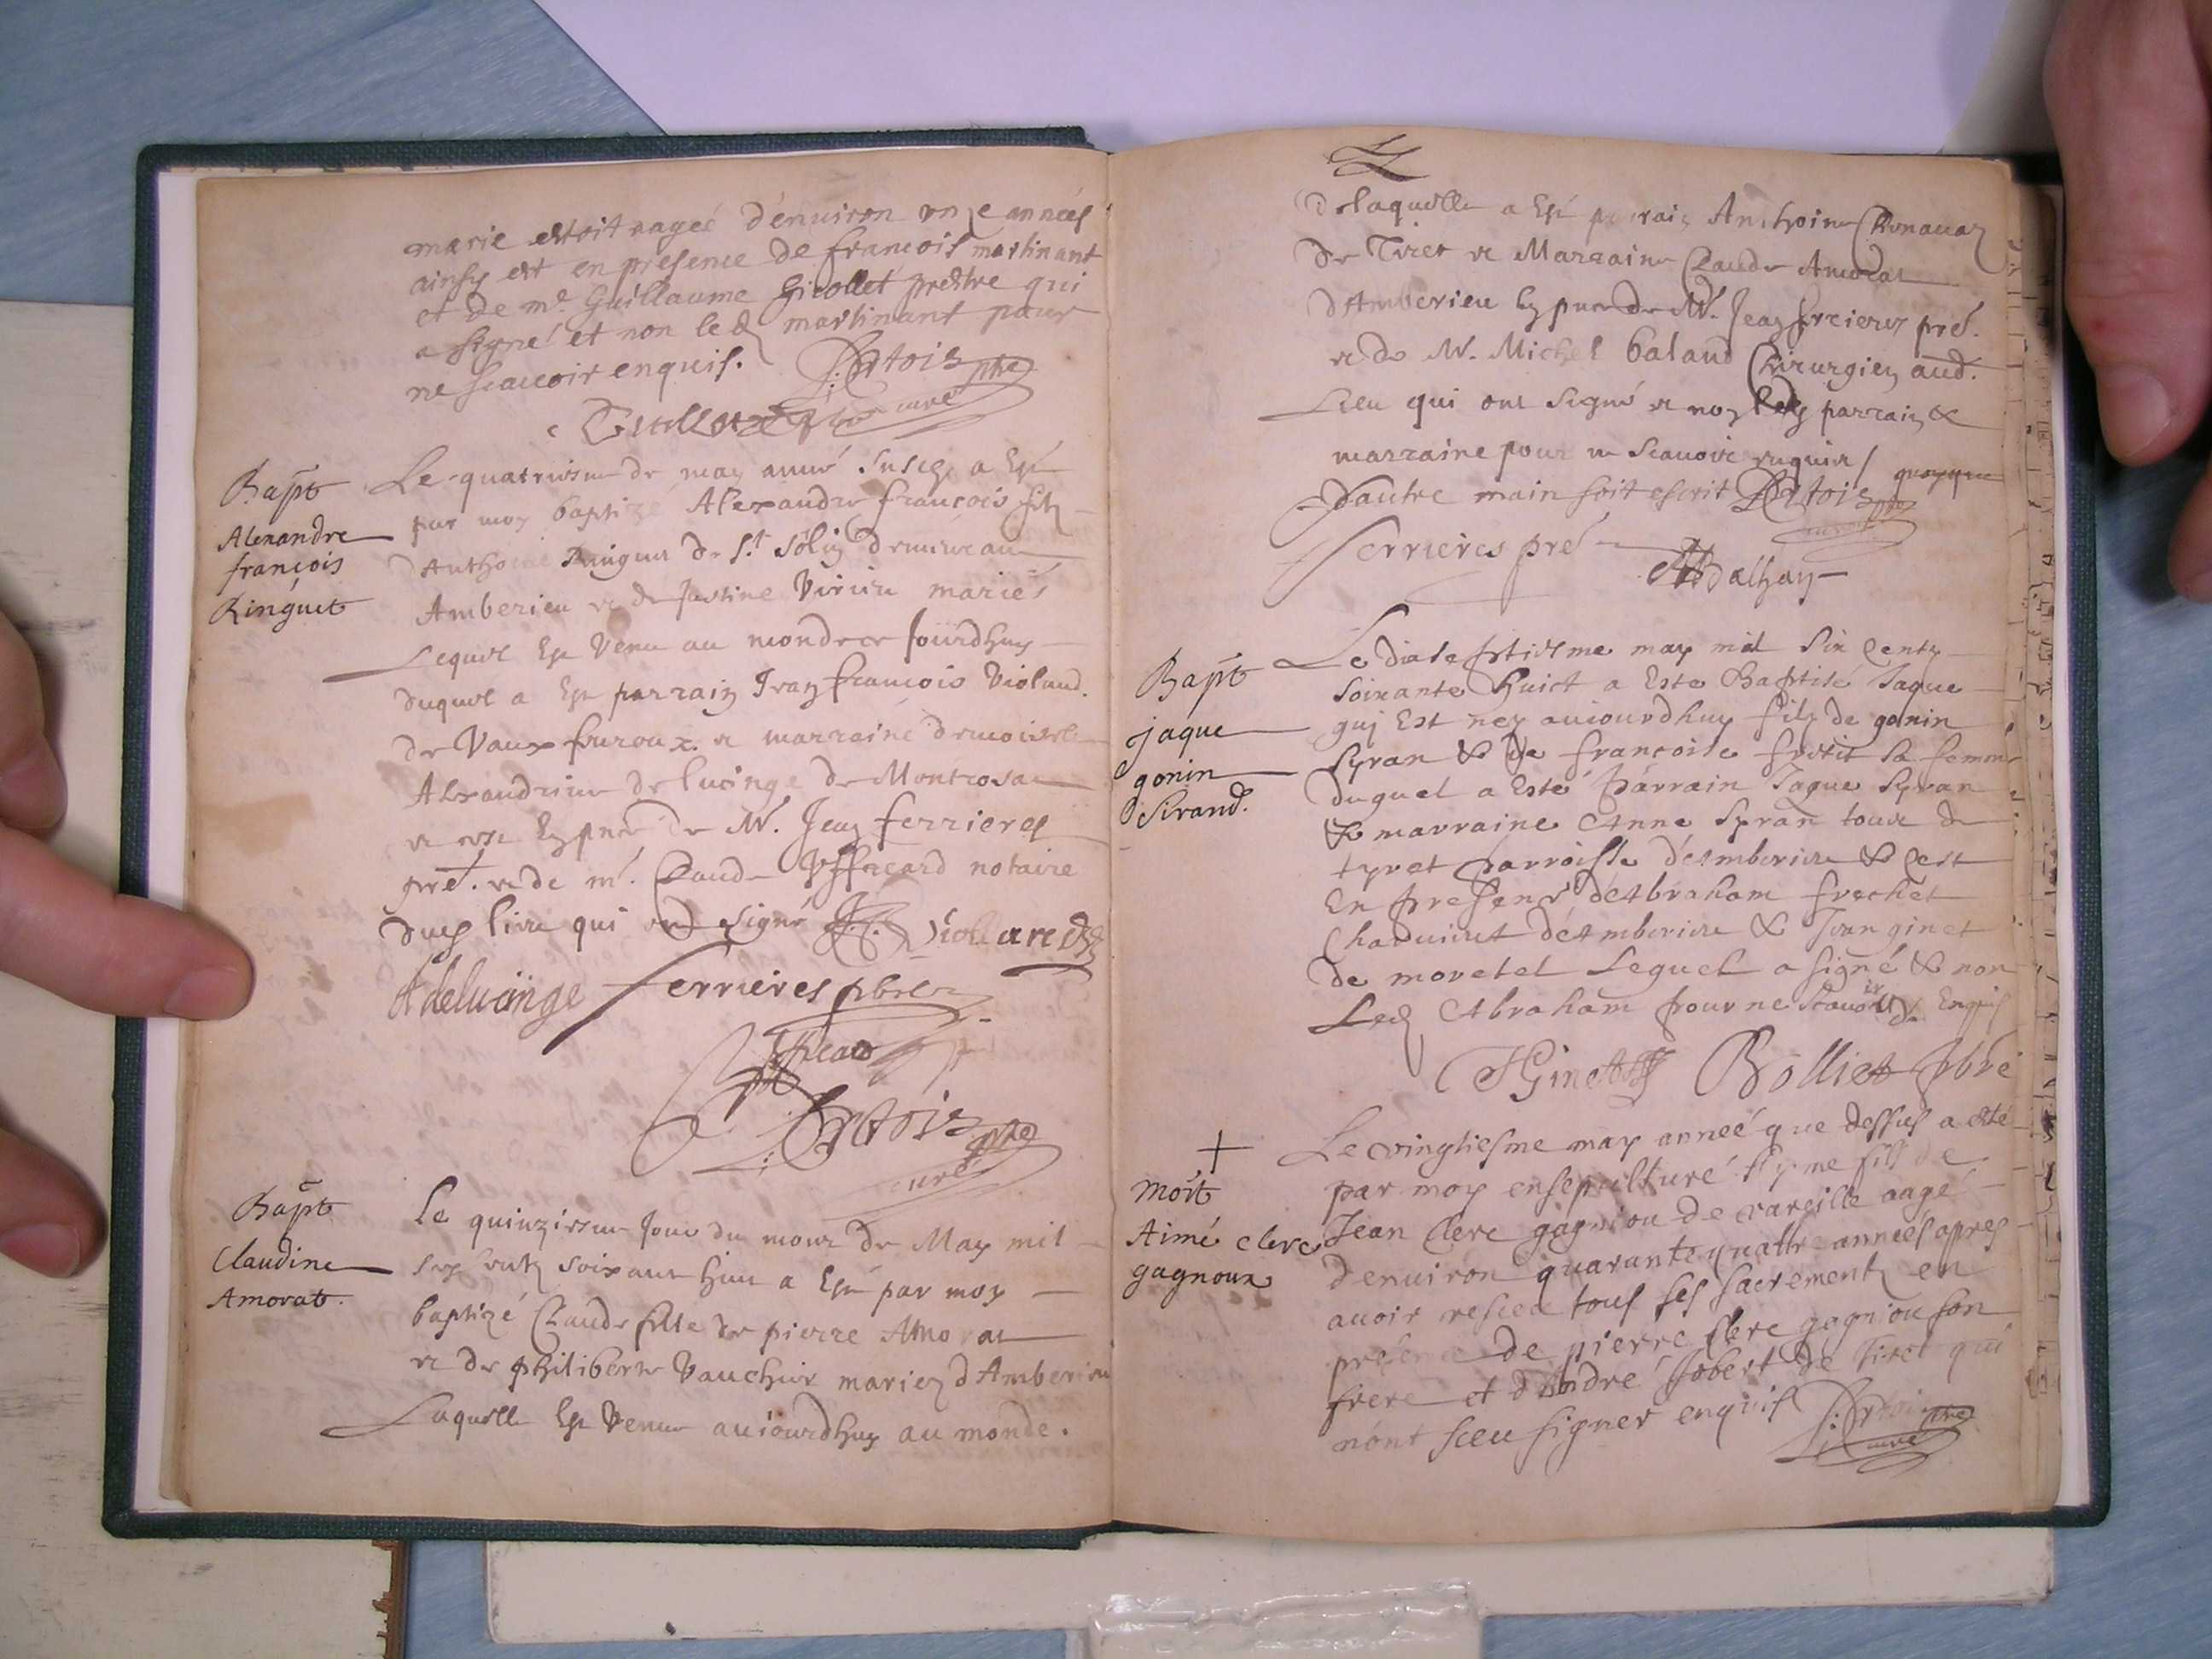 marie estoit aageé d'enuiron onze anneés
ainsy est en presence de francois martinant
et de mᵉ Guillaume prestre qui
a signé et non led martinant pour
ne scauoir enquis. Artois pbre
curé
Bapt
Alexandre
françois
Ringuet
Le quatriesme de may anné susd a esté
par moy baptizé Alexandre francois filz
d'Anthoine Ringuet de S.t demeurant
Amberieu et de Justine mariés
Lequel est venu au monde ce jourdhuy
duquel a esté parrain Jean francois Violand.
de Vaux feuroux. et marraine demoiselle
Alexandrine de lucinge de Montrosa
et ce en pnce de Mʳ. Jean ferrieres
pre. et de mᵉ. Claude notaire
dud lieu qui ont signé
Adelucinge ferrieres pbre
Artois pbre
curé
Bapt
Claudine
Amorat.
Le quinziesme jour du mois de May mil
six centz soixante huit a esté par moy
baptizé Claude fille de pierre Amorat
et de philiberte Vauchier mariez d'Amberieu
Laquelle est venue auiourdhuy au monde.
De laquelle a esté parrain Anthoine
de Tiret et Marraine Claude Amorat
d'Amberieu en pnce de Mʳ. Jean ferrieres pre.
et de Mʳ. Michel balaud Chirurgien aud.
Lieu qui ont signé et non lesd parrain &
marraine pour ne scauoir enquis / quoyque
d'autre main soit escrit Artois pbre
curé
ferrieres pre
Bapt
jaque
gonin
Sirand.
Le dixseptiesme may mil six centz
soixante huict a este Baptisé Jaque
qui Est ney auiourdhuy filz de gonin
Syran & de francoise sa femme
duquel a esté parrain Jaque Syran
& marraine Anne Syran tous de
tyret parroisse d'Amberieu & cest
En presence d'Abraham frechet
d'Amberieu & Jean ginet
de moretel Lequel a signé & non
Led Abraham pour ne scauoir de Enquis
Ginet Bolliet pbre
+
Mort
Aimé clerc
gagnoux
Le vingtiesme may anneé que dessus a esté
par moy ensepulturé Eyme fils de
Jean Clerc gagniou de vareille aagé
d'enuiron quarante quattre anneés apres
auoir receu tous ses sacrementz en
presence de pierre Clerc gagniou son
frere et d'André Jobert de tiret qui
n'ont sceu signer enquis Artois pbre
curé